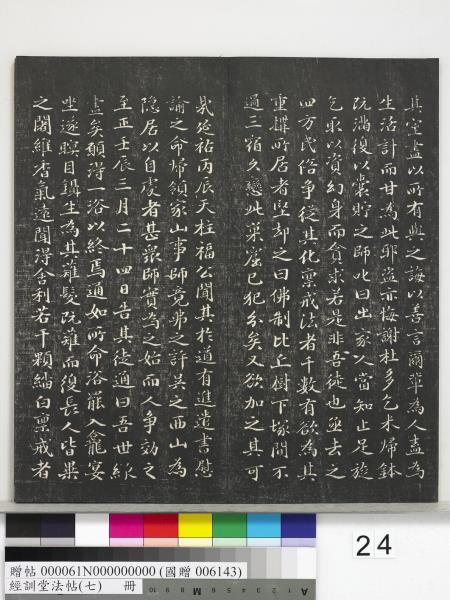 其室盡以所有與之誨以善言爾輩為人盍為
生活計而甘為此耶盜亦悔謝杜多乞米歸鉢
既滿復以囊貯之師叱曰出家人當知止足旋
乞取以資幻身而貪求若是非吾徒也亟去之
四方民俗爭從其化稟戒法者千數有欲為其
重搆所居者堅却之曰佛制比丘樹下塚間不
過三宿久戀此窠窟已犯分矣又欲加之其可
哉延祐丙辰天柱福公聞其於道有進遣書慰
諭之命歸領家山事師竟弗之許吳之西山為
隱居以自虔者甚眾師實為之始而人爭効之
至正壬辰三月二十四日告其徒通曰吾世緣
盡矣願得一浴以終焉通如所命浴罷入龕宴
坐遂瞑目鑷生為其薙髮既薙而復長人皆異
之闍維香氣遠聞得舍利若干顆緇白稟戒者
24
贈帖 000061N000000000 (國贈 006143)
經訓堂法帖(七) 冊